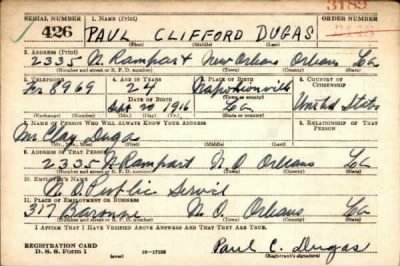 SERIAL NUMBER 1. NAME (Print) ORDER NUMBER
426 PAUL CLIFFORD DUGAS
(First) (Middle) (Last)
2. ADDRESS (Print)
2335 N Rampart New Orleans Orleans La
(Number and street or R. F. D. number) (Town) (County) (State)
3. TELEPHONE 4. AGE IN YEARS 5. PLACE OF BIRTH 6. COUNTRY OF CITIZENSHIP
8969 24 Napoleonville
DATE OF BIRTH (Town or county)
Sept 20 1916 La United States
(Exchange) (Number) (Mo.) (Day) (Yr.) (State or country)
7. NAME OF PERSON WHO WILL ALWAYS KNOW YOUR ADDRESS 8. RELATIONSHIP OF THAT PERSON
Mr Clay Dugas
(Mr., Mrs., Miss) (First) (Middle) (Last)
9. ADDRESS OF THAT PERSON
2335 N Rampart N.O Orleans La
(Number and street or R. F. D. number) (Town) (County) (State)
10. EMPLOYER'S NAME
N.O. Public Servic
11. PLACE OF EMPLOYMENT OR BUSINESS
317 Baronne N.O. Orleans La
(Number and street or R. F. D. number) (Town) (County) (State)
I AFFIRM THAT I HAVE VERIFIED ABOVE ANSWERS AND THAT THEY ARE TRUE.
REGISTRATION CARD
D. S. S. Form 1 (over) 16—17105 Paul C. Dugas
(Registrant's signature)